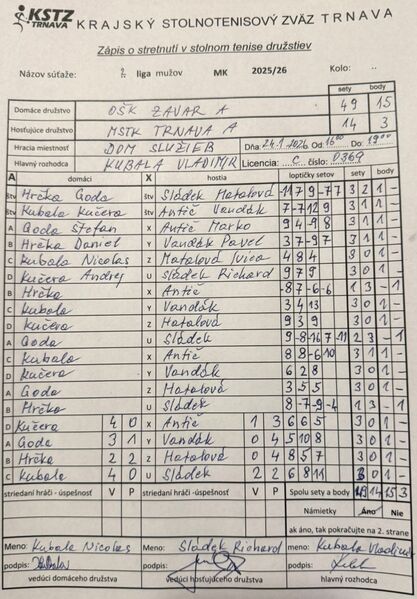 KSTZ TRNAVA KRAJSKÝ STOLNOTENISOVÝ ZVÄZ TRNAVA
Zápis o stretnutí v stolnom tenise družstiev
Názov súťaže: 2. liga mužov MK 2025/26 Kolo: ..
sety body
Domáce družstvo OŠK ZAVAR A 49 15
Hosťujúce družstvo MSTK TRNAVA A 14 3
Hracia miestnosť DOM SLUŽIEB Dňa: 24.1.2026 Od: 16 00 Do: 19 00
Hlavný rozhodca KUBALA VLADIMÍR Licencia: C číslo: 0369
A domáci X hostia loptičky setov sety body
štv Hrčka Goda štv Sládek Hatalová -11 7 9 -7 7 3 2 1 -
štv Kubala Kučera štv Antič Vandák 7 -7 12 9 3 1 1 -
A Goda Štefan X Antič Marko 9 4 -9 8 3 1 1 -
B Hrčka Daniel Y Vandák Pavel 3 7 -9 7 3 1 1 -
C Kubala Nicolas Z Hatalová Ivica 4 8 4 3 0 1 -
D Kučera Andrej U Sládek Richard 9 7 9 3 0 1 -
B Hrčka X Antič -8 7 -6 -6 1 3 - 1
C Kubala Y Vandák 3 4 13 3 0 1 -
D Kučera Z Hatalová 9 3 9 3 0 1 -
A Goda U Sládek 9 -8 -16 7 -11 2 3 - 1
C Kubala X Antič 8 8 -6 10 3 1 1 -
D Kučera Y Vandák 6 2 8 3 0 1 -
A Goda Z Hatalová 3 5 5 3 0 1 -
B Hrčka U Sládek 8 -7 -9 -4 1 3 - 1
D Kučera 4 0 X Antič 1 3 6 6 5 3 0 1 -
A Goda 3 1 Y Vandák 0 4 5 10 8 3 0 1 -
B Hrčka 2 2 Z Hatalová 0 4 8 5 7 3 0 1 -
C Kubala 4 0 U Sládek 2 2 6 8 11 3 0 1 -
striedaní hráči - úspešnosť V P striedaní hráči - úspešnosť V P Spolu sety a body 49 14 15 3
Námietky Áno Nie
ak áno, tak pokračujte na 2. strane
Meno: Kubala Nicolas Meno: Sládek Richard meno: Kubala Vladimír
podpis: podpis: podpis:
vedúci domáceho družstva vedúci hosťujúceho družstva hlavný rozhodca